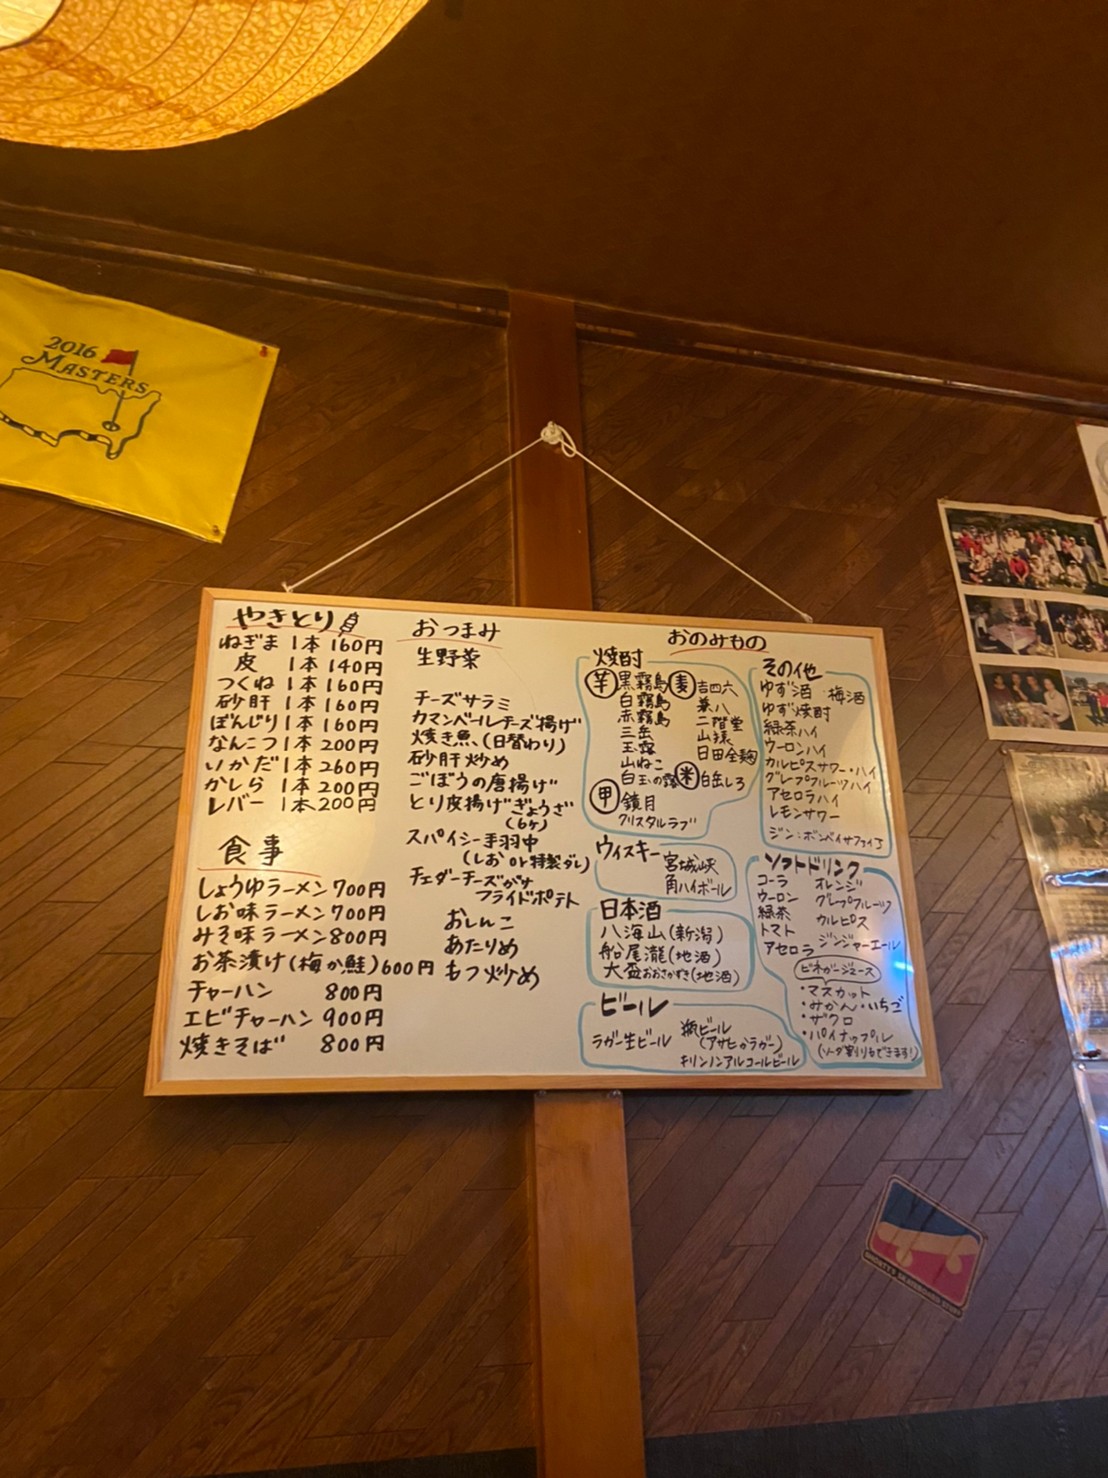 2016
MASTERS
やきとり
ねぎま 1本 160円
皮 1本 140円
つくね 1本 160円
砂肝 1本 160円
ぼんじり 1本 160円
なんこつ 1本 200円
いかだ 1本 260円
かしら 1本 200円
レバー 1本 200円
食事
しょうゆラーメン 700円
しお味ラーメン 700円
みそ味ラーメン 800円
お茶漬け(梅か鮭) 600円
チャーハン 800円
エビチャーハン 900円
焼きそば 800円
おつまみ
生野菜
チーズサラミ
カマンベールチーズ揚げ
焼き魚、(日替わり)
砂肝炒め
ごぼうの唐揚げ
とり皮揚げぎょうざ
(6ケ)
スパイシー手羽中
(しお or 特製ダレ)
チェダーチーズがけ
フライドポテト
おしんこ
あたりめ
もつ炒め
おのみもの
焼酎
芋 黒霧島
白霧島
赤霧島
三岳
玉露
山ねこ
白玉の露
麦 吉四六
兼八
二階堂
山猿
日田全麹
米 白岳しろ
甲 鏡月
クリスタルラブ
ウィスキー
宮城峡
角ハイボール
日本酒
八海山(新潟)
船尾瀧(地酒)
大盃おおさかずき(地酒)
ビール
ラガー生ビール
瓶ビール
(アサヒorラガー)
キリンノンアルコールビール
その他
ゆず酒 梅酒
ゆず焼酎
緑茶ハイ
ウーロンハイ
カルピスサワー・ハイ
グレプフルーツハイ
アセロラハイ
レモンサワー
ジン:ボンベイサファイア
ソフトドリンク
コーラ
ウーロン
緑茶
トマト
アセロラ
オレンジ
グレプフルーツ
カルピス
ジンジャーエール
ビネガージュース
・マスカット
・みかん・いちご
・ザクロ
・パイナップル
(ソーダ割りもできます!)